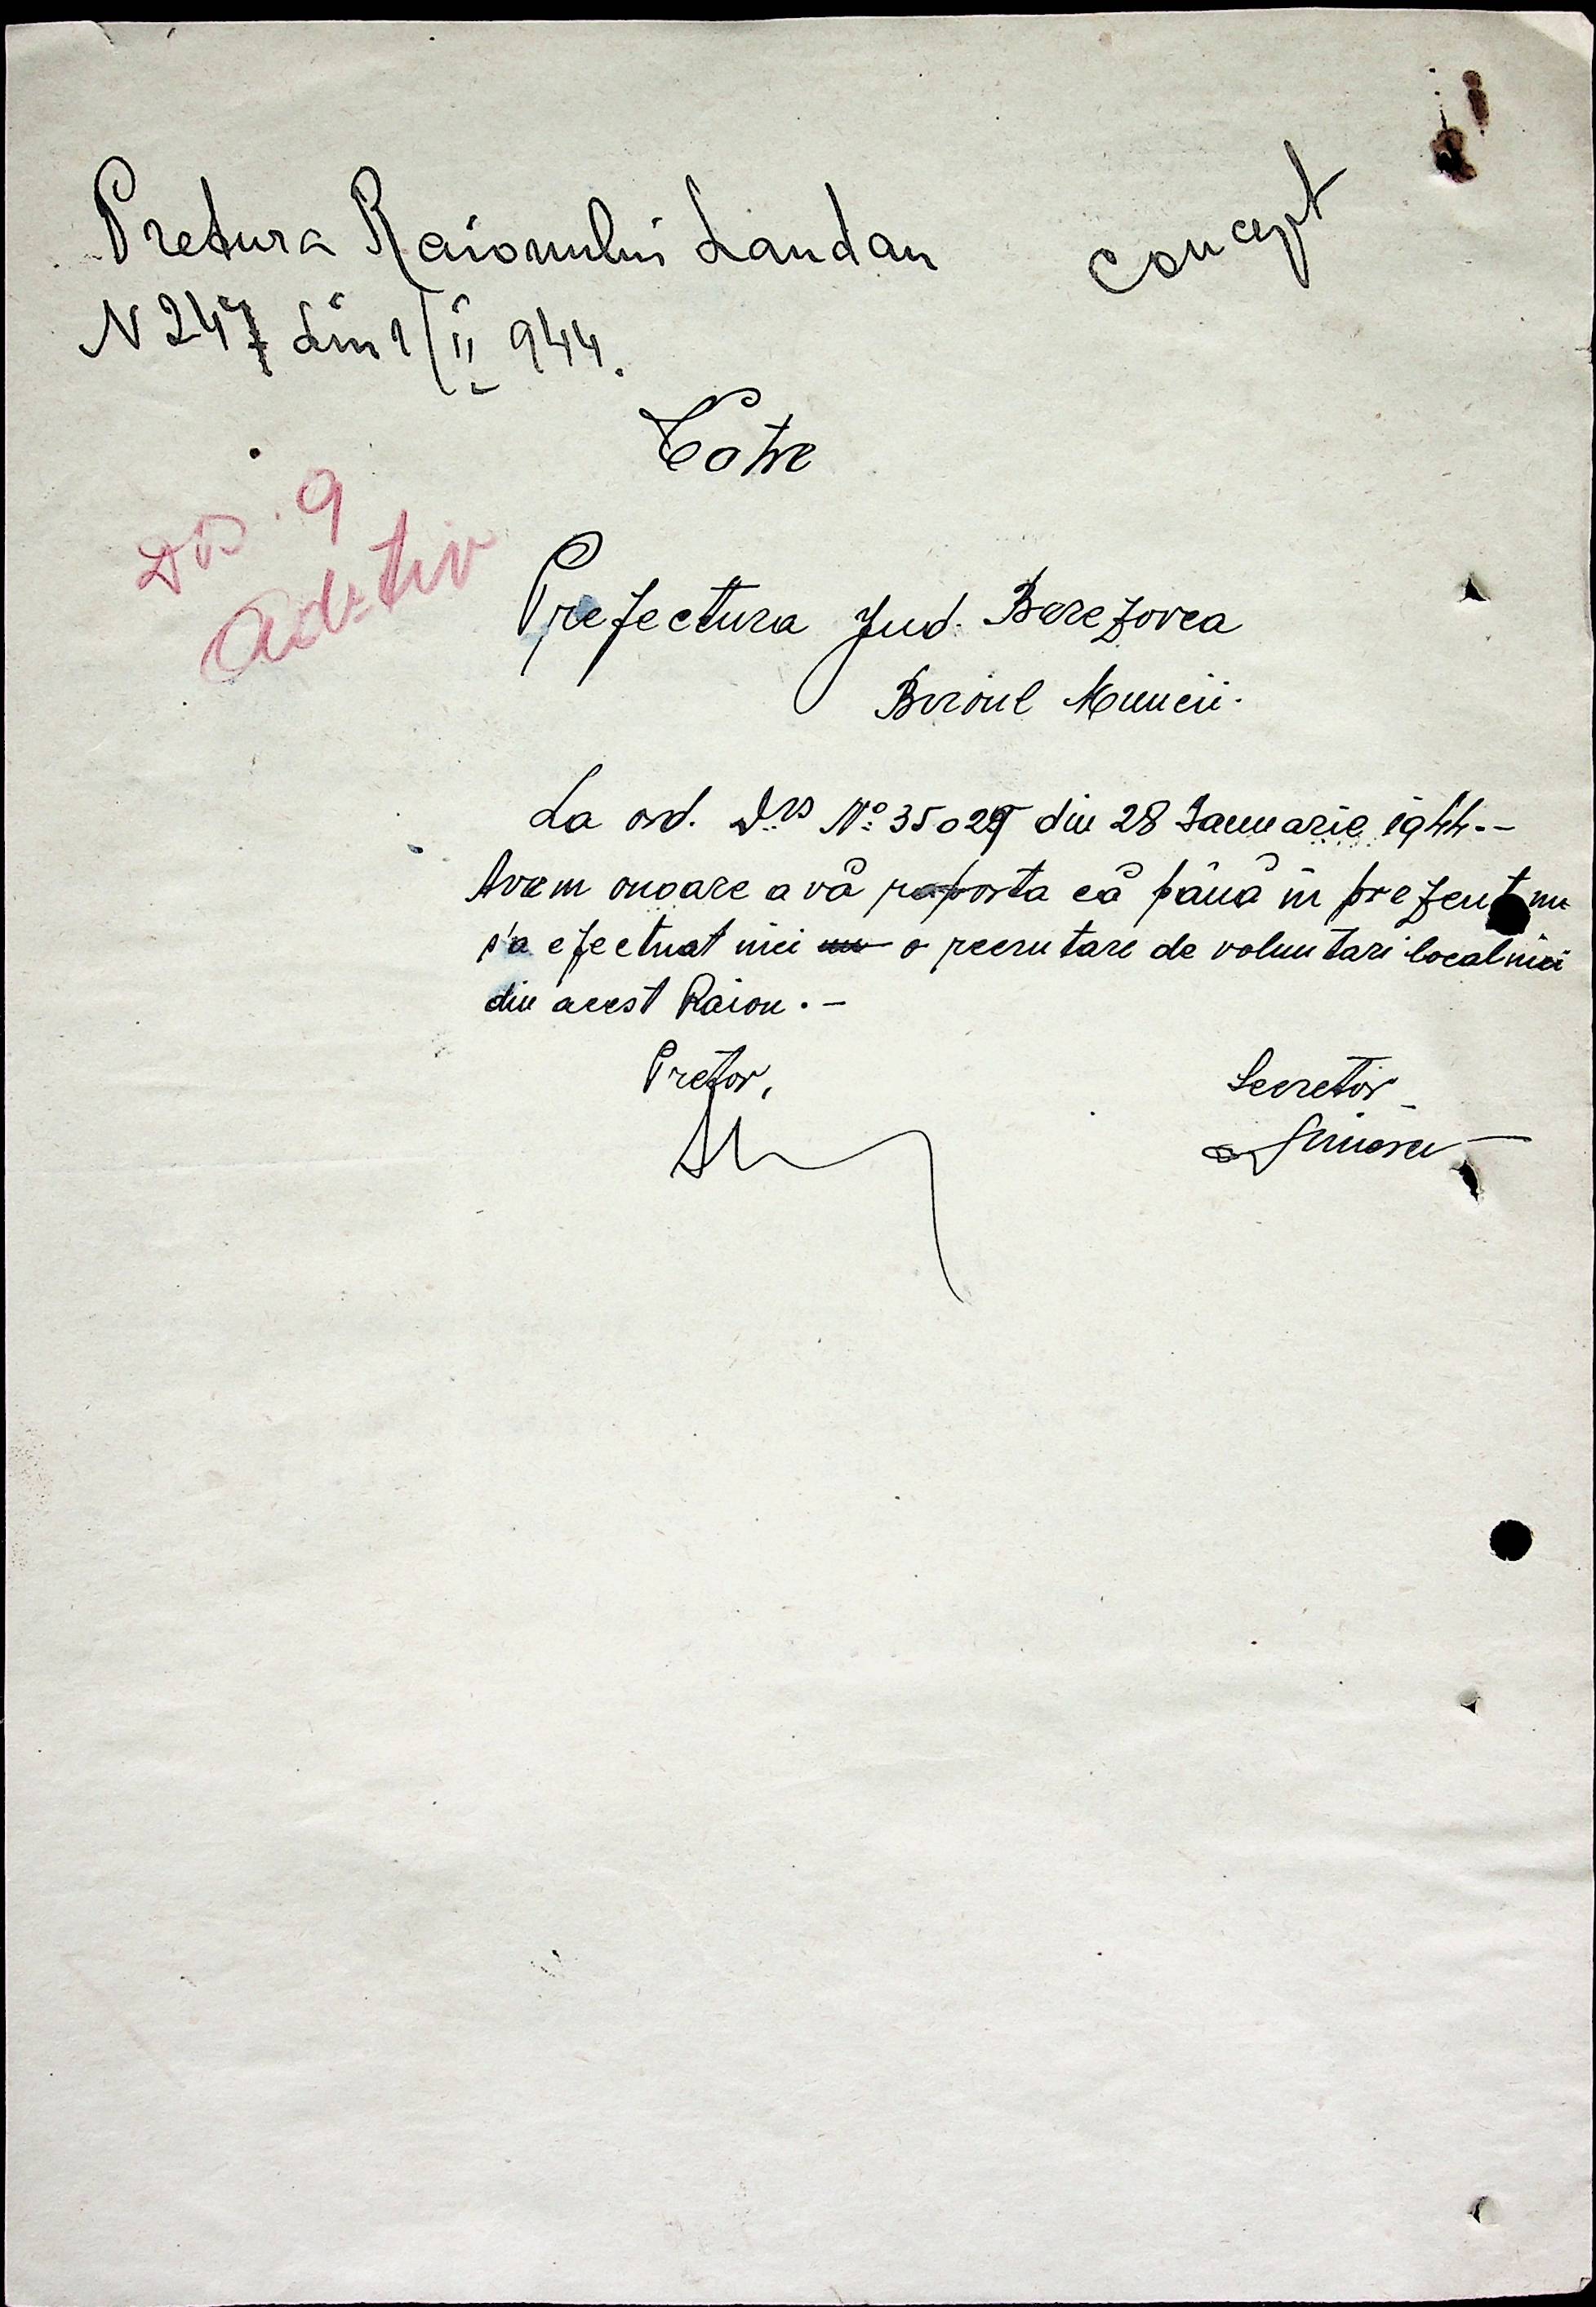 Pretura Raionului Landau
concept
N 247 din 1/II 944.
Către
Dos. 9
Aditiv
Prefectura Jud. Berezovca
Biroul Muncii.
La ord. Dvs Nº 35029 din 28 Ianuarie 1944.-
Avem onoare a vă raporta că până în prezent nu
s'a efectuat nici o recrutare de voluntari localnici
din acest Raion.-
Pretor,
Secretar